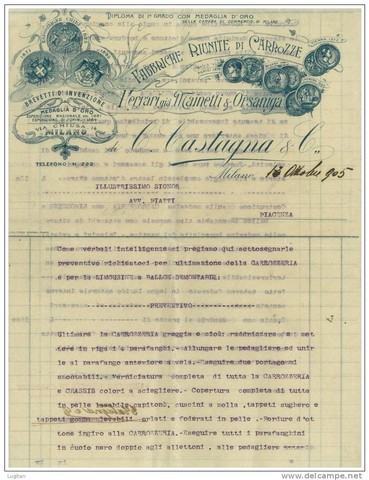 DIPLOMA DI 1° GRADO CON MEDAGLIA D'ORO
DELLA CAMERA DI COMMERCIO DI MILANO
FABBRICHE RIUNITE DI CARROZZE
Ferrari già Mainetti & Orsaniga
di Castagna & C.
BREVETTI D'INVENZIONE
MEDAGLIA D'ORO
ESPOSIZIONE NAZIONALE 1881
VIA CHIUSA
MILANO
TELEFONO N. 222
Milano 13 Ottobre 905
ILLUSTRISSIMO SIGNOR
AVV. PIATTI
PIACENZA
Come verbali intelligentesi pregiamo qui sottosegnarle
preventivo richiestoci per ultimazione della CARROZZERIA
e per la LIMOUSINE a BALLON DEMONTABLE:
PREVENTIVO
Ultimare la CARROZZERIA greggia e cioè: raddrizzare e met
tere in rigadi i parafanghi.- Allungare le pedagliere ed unir
le al parafango anteriore a vela.- Eseguire due portagomma
smontabili.- Verniciatura completa di tutta la CARROZZERIA
e CHASSIS colori a scieglere.- Copertura completa di tutta
in pelle lavabile capitoné, cuscini a molla, tappeti sughero e
tappeti gomma levabili orlati e foderati in pelle.- Bordure d'ot
tone ingiro alla CARROZZERIA.- Eseguire tutti i parafanghini
in cuoio nero doppio agli allettoni, alle pedagliere